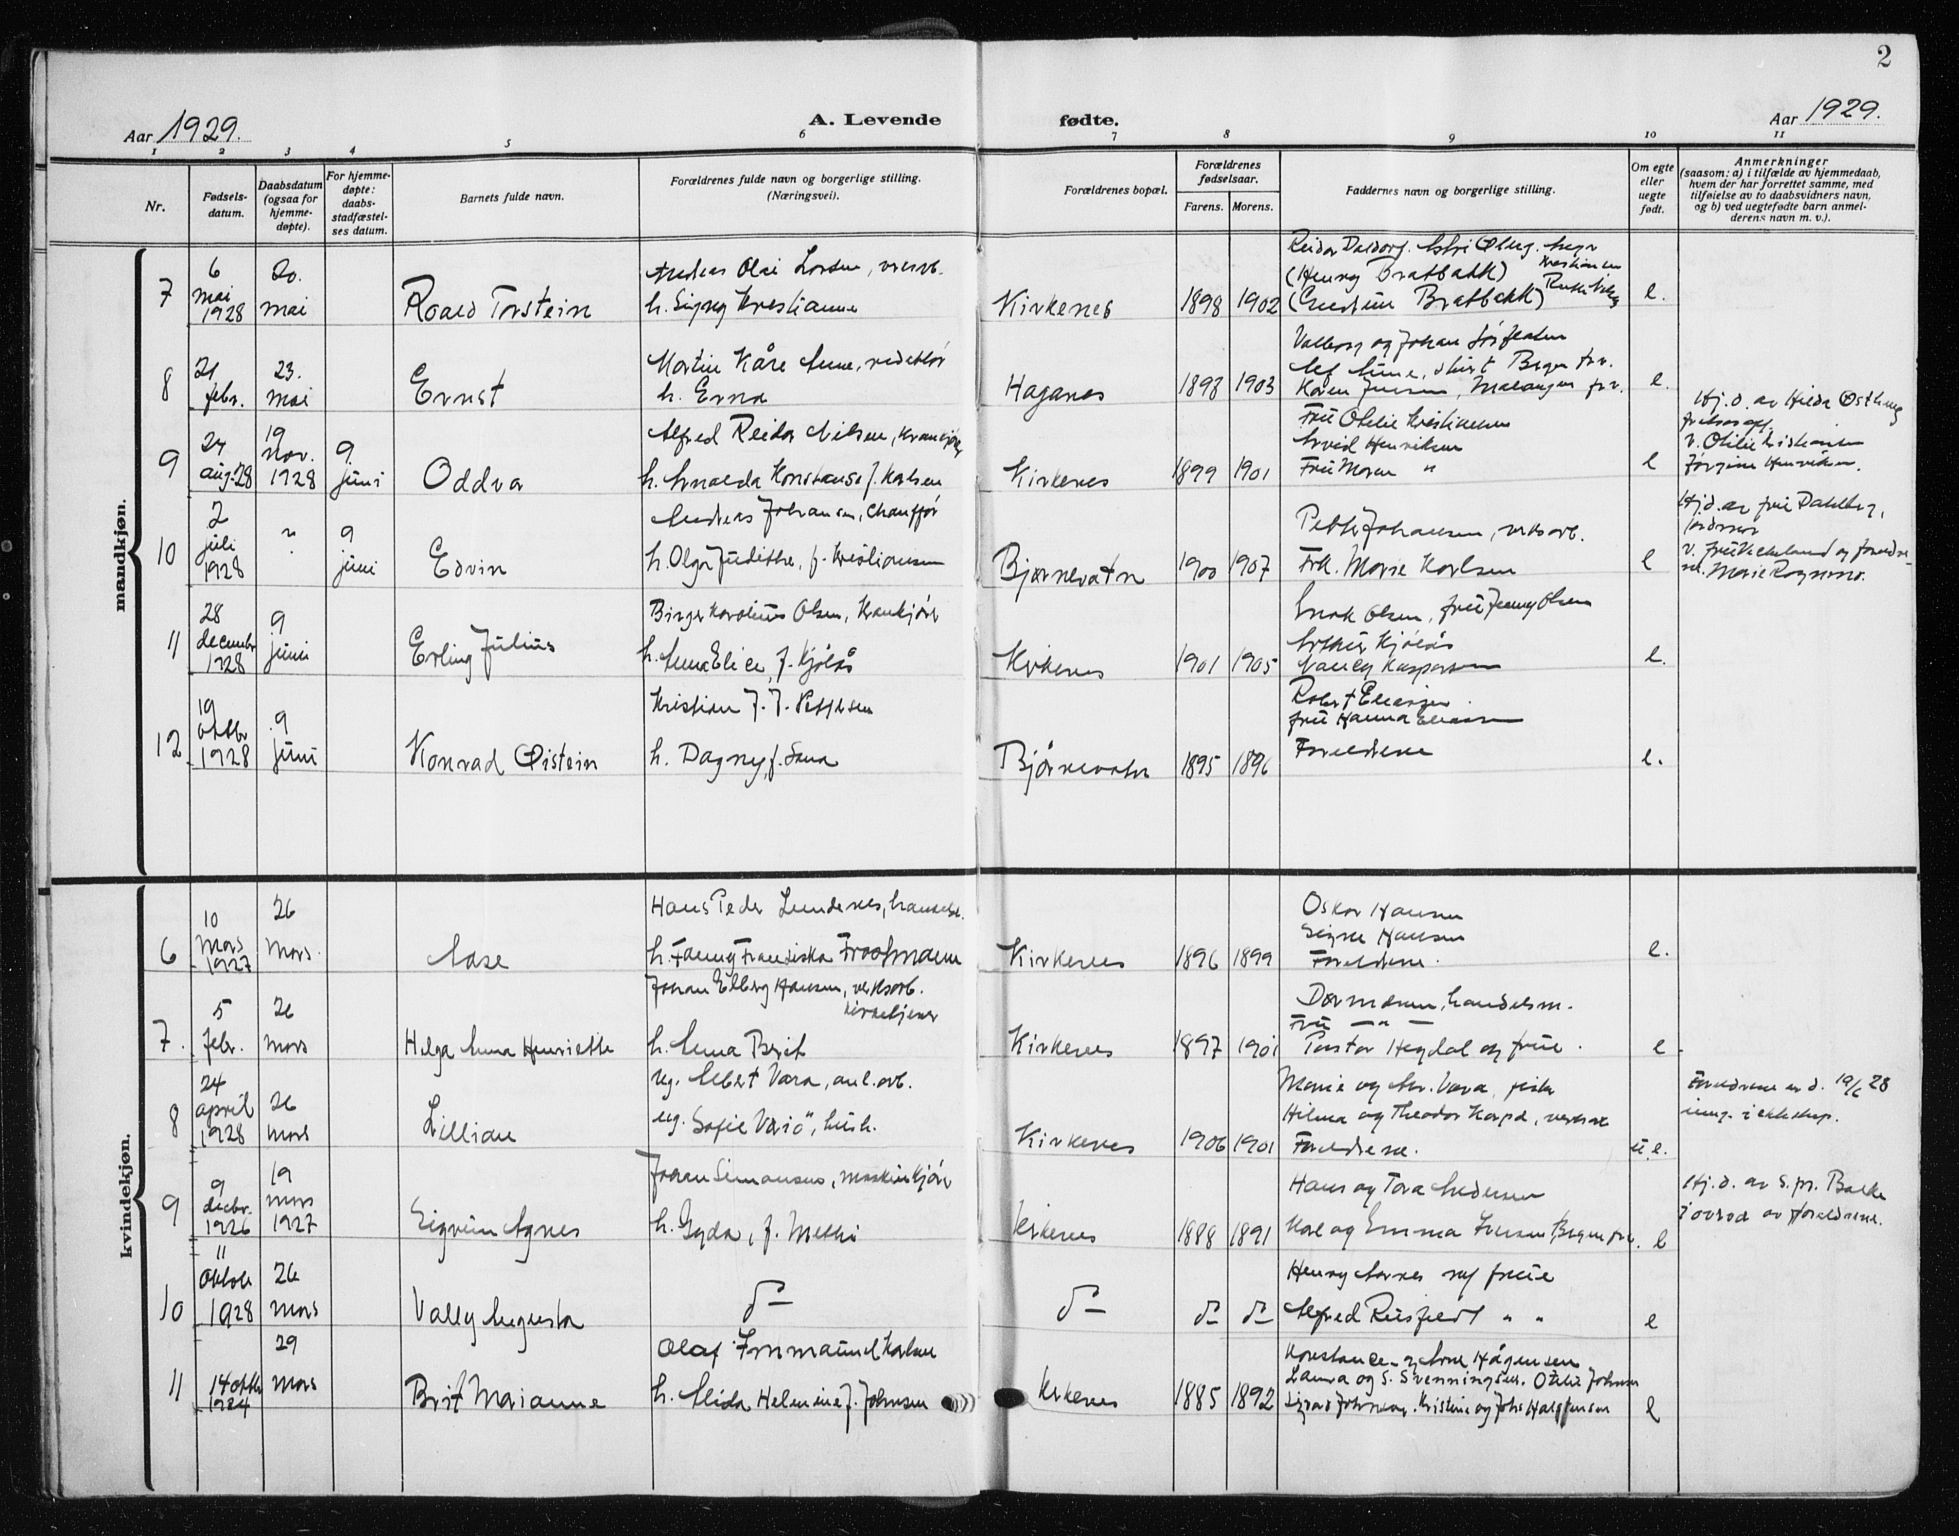 2
Aar 1929.
A. Levende fødte.
Aar 1929.
1 2 3 4 5 6 7 8 9 10 11
Nr.
Fødsels-
datum.
Daabsdatum
(ogsaa for
hjemme-
døpte).
For hjemme-
døpte:
daabs-
stadfæstel-
ses datum.
Barnets fulde navn.
Forældrenes fulde navn og borgerlige stilling.
(Næringsvei).
Forældrenes bopæl.
Forældrenes
fødselsaar.
Farens. Morens.
Faddernes navn og borgerlige stilling.
Om egte
eller
uegte
født.
Anmerkninger
(saasom: a) i tilfælde av hjemmedaab,
hvem der har forrettet samme, med
tilføielse av to daabsvidners navn,
og b) ved uegtefødte barn anmel-
derens navn m. v.).
mandkjøn.
7
6
mai
1928
20.
mai
Roald Torstein
Andreas Olai Larsen,
h. Signy Kristianne
Kirkenes
1898 1902
(Henry Bratbakk)
Bratbakk)
e.
8
21
febr.
23.
mai
Ernst
Martin Kåre Aune, redaktør
h. Erna
Haganes
1898 1903
Valborg og Johan
Karen Iversen, Malangen
e.
9
24
aug. 28
19
nov.
1928
9
juni
Oddva
Alfred Reidar Nilsen,
h. Arnalda Konstanse f. Karlsen
Kirkenes
1899 1901
Fru Otilie Kristiansen
Arvid Henriksen
Fru Maren "
e
Hj. d. av Hilda
v. Otilie Kristiansen
Jørgine Henriksen.
10
2
juli
1928
"
9
juni
Edvin
Andreas Johansen, chauffør
h. Olga Judithe, f. Kristiansen
Bjørnevatn
1900 1907
Petter Johansen, verksarb.
Frk. Marie Karlsen
e
Hj. d. av fru Dahlberg,
jordmor
v. fru og foreldre-
ne. Marie
11
28
decembr
1928
9
juni
Erling Julius
Birger Karolius Olsen, Krankjører
h. Anna Elice, f. Kjølås
Kirkenes
1901 1905
Olsen, fru Jenny Olsen
Arthur Kjølås
Nancy Kaspersen
e.
12
19
oktbr
1928
9
juni
Konrad Øistein
Kristian J. J. Pettersen
h. Dagny, f. Sara
Bjørnevatn
1895 1896
Robert Eliassen
fru Hanna Eliassen
Foreldrene
e.
kvindekjøn.
6
10
mars
1927
26
mars
Aase
Hans Peder Lundenes,
h. Fanny Franciska
Kirkenes
1896 1899
Oskar Hansen
Signe Hansen
Foreldrene.
e.
7.
5
febr.
26
mars
Helga Anna Henriette
Johan Elberg Hansen, verksarb.
kirketjener
h. Anna Berit
Kirkenes
1897 1901
handelsm.
Fru — " —
Pastor Hegdal og frue.
e.
8
24
april
1928
26
mars
Lillian
ug. Albert Vara, anl. arb.
ug. Sofie Variö, hush.
Kirkenes
1906 1901
Marie og Vara,
Hilma og Theodor Karpa,
Foreldrene.
u. e.
Foreldrene er d. 19/6 28
inng. i ektskap.
9
9
decbr.
1926
19
mars
1927
Sigrun Agnes
Johan Simonsen, maskinkjører
h. Gyda, f. Methi
Kirkenes
1888 1891
Hans og Tora Andersen
Karl og Emma Iversen,
e
Hj. d. av s. pr. Balke
av foreldrene.
10
11
oktob
1928
26
mars
Vally Augusta
d⁰
d⁰
d⁰ d⁰
Henry Aarnes og frue
Alfred " "
e
11
14 oktbr
1924
29
mars
Brit Marianne
Olaf Immanuel Karlsen
h. Alida Helmine f. Johnsen
Kirkenes
1885 1892
Konstance og Arne Hågensen
Laura og S. Svenningsen. Otilie Johnsen
Kristine og Johs
e